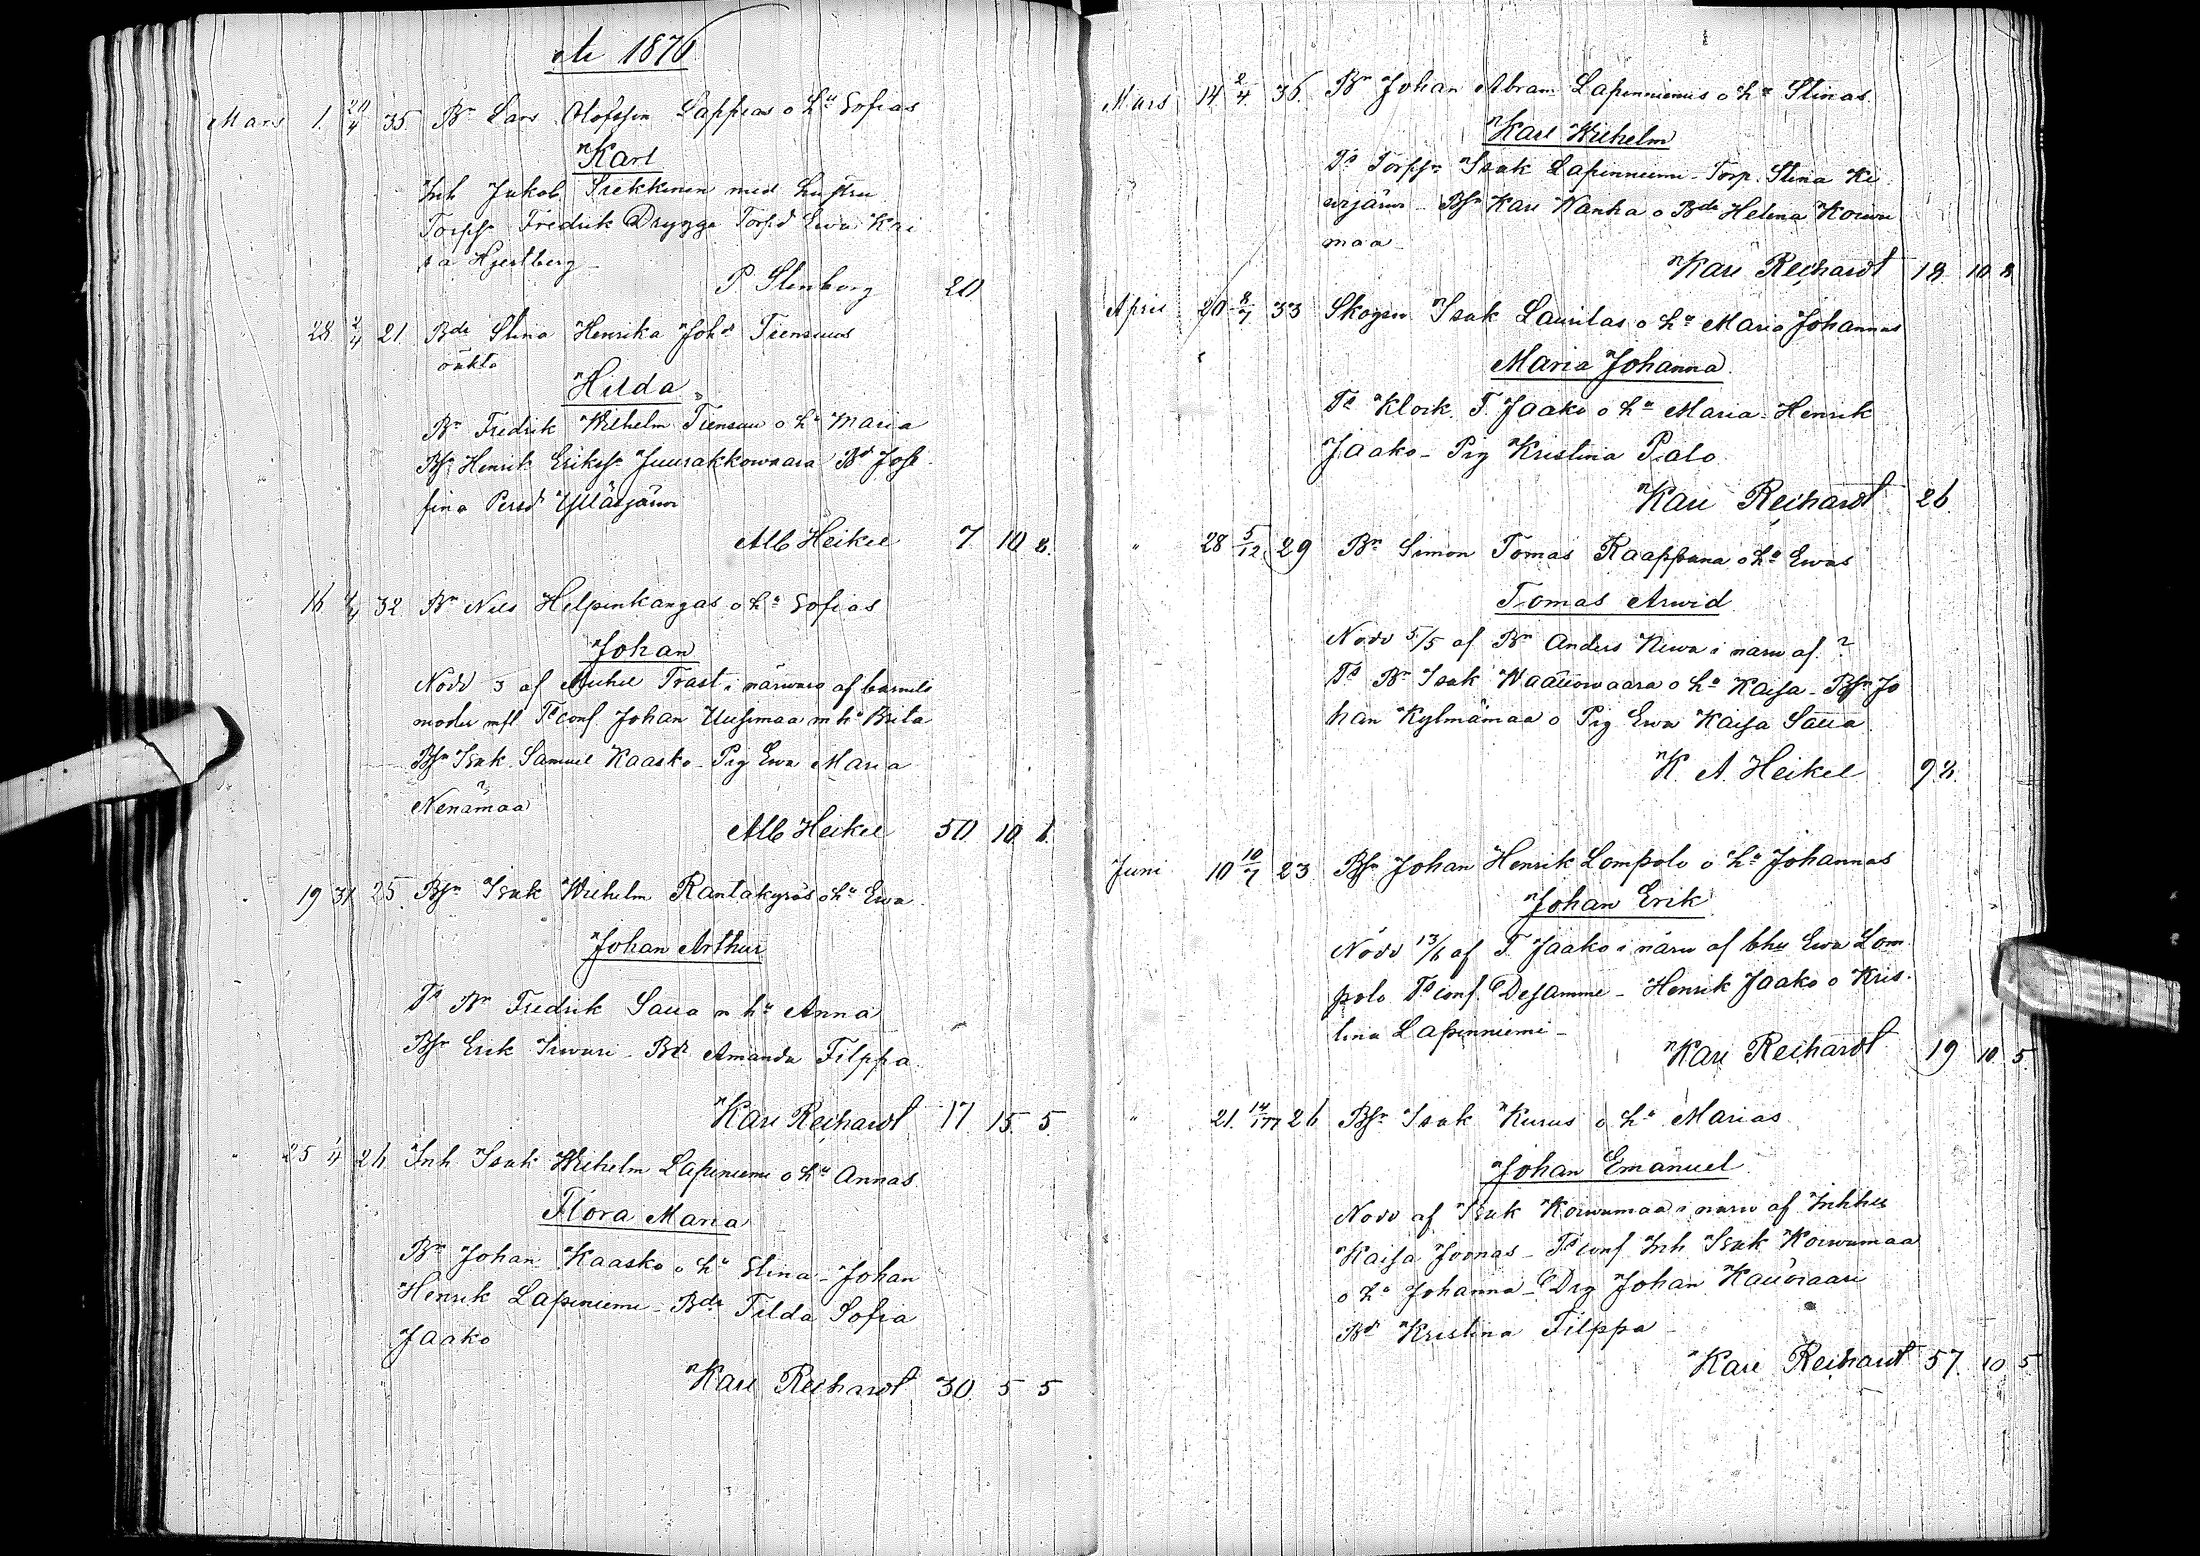 År 1876
Mars 1. 20/4 35. Bn Lars Olofsson Lappeas o hu Sofias
Karl
Inh Jakob Siekkinen med hustru
Torpsn Fredrik Drygge Torpd Ewa Kri
sa Hjertberg
P. Stenborg 20
28 2/4 21. Bdr Stina Henrika Johdr Tiensuus
oäkta
Hilda
Bn Fredrik Wilhelm Tiensuu o hu Maria
Bsn Henrik Eriksn Juurakkowaara Bdr Jose
fina Persd Ylläsjärvi
Alb Heikel 7. 10 8.
16 32 Bn Nils Helpinkangas o hu Sofias
Johan
Nödd 3 af Michel Trast i närwaro af barnets
moder mfl Ts conf Johan Uusimaa m hu Brita
Bsn Isak Samuel Kaasko Pig Ewa Maria
Nenämaa
Alb Heikel 50 10. 6.
19 31 25. Bsn Isak Wilhelm Rantakyrös o hu Ewa
Johan Arthur
Ts Bn Fredrik Saua m hu Anna
Bsn Erik Siwari Bdr Amanda Filppa
Karl Reichardt 17 15. 5.
25 4 26 Inh Isak Wilhelm Lapiniemi o hu Annas
Flora Maria
Bn Johan Kaasko o hu Stina Johan
Henrik Lapiniemi Bdr Tilda Sofia
Jaako
Karl Reichardt 30 5 5
Mars 14. 2/4. 36. Bn Johan Abram Lapinniemis o hu Stinas
Karl Wilhelm
Ts Torpsn Isak Lapinniemi Torp. Stina Ki
erijärvi Bsn Karl Wanha o Bdr Helena Koiwu
maa
Karl Reichardt 19 10 8
April 20 8/7 33 Skogsv Isak Lauritas o hu Maria Johannas
Maria Johanna
Ts Klock. F. Jaako o hu Maria Henrik
Jaako Pig Kristina Palo
Karl Reichardt 26.
" 28 5/12 29 Bn Simon Tomas Raappana o hu Ewas
Tomas Arwid
Nödd 5/5 af Bn Anders Niwa i närw af ?
Ts Bn Isak Waaliowaara o hu Kaisa Bsn Jo
han Kylmämaa o Pig Ewa Kaisa Saua
K. A. Heikel 98.
Juni 10 10/7 23 Bsn Johan Henrik Lompolo o hu Johannas
Johan Erik
Nödd 13/6 af F Jaako i närw af bhu Ewa Lom
polo Ts conf. Desamme Henrik Jaako o Kris
tina Lapinniemi
Karl Reichardt 19 10 5
" 21. 14/177 26 Bsn Isak Kurus o hu Marias
Johan Emanuel
Nödd af Isak Koiwumaa i närw af Inhhu
Kaisa Joonas Ts conf Inh Isak Koiwumaa
o hu Johanna Drg Johan
Bdr Kristina Filppa
Karl Reichardt 57. 10 5